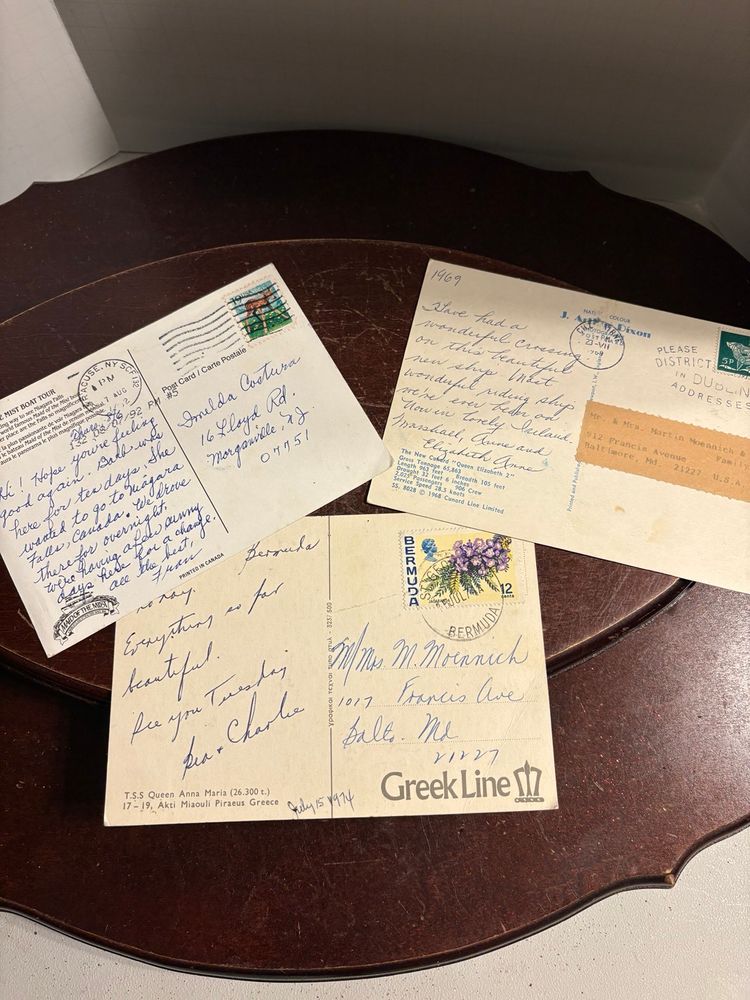 MIST BOAT TOUR
SYRACUSE, NY SCF 132
PM
AUG
19
Post Card / Carte Postale
Hi! Hope you're feeling
good again. Barb was
here for ten days. She
wanted to go to Niagara
Falls, Canada. We drove
there for overnight.
We're having a few sunny
days here for a change.
all the best,
Fran
MAID OF THE MIST
PRINTED IN CANADA
Imelda Costura
16 Lloyd Rd.
Morganville, NJ
07751
1969
Have had a
wonderful crossing
on this beautiful
new ship. Most
wonderful riding ship
we've ever been on
Now in lovely Ireland.
Marshall, Anne and
Elizabeth Anne
The New Cunard "Queen Elizabeth 2"
Gross Tonnage 65,863 Breadth 105 feet
Length 963 feet
Draught 32 feet 6 inches
2,025 Passengers 906 Crew
Service Speed 28.5 knots
SS. 8028 © 1968 Cunard Line Limited
NATURAL COLOUR
J. Arthur Dixon
21-VII
PLEASE
DISTRICT
IN DUBLIN
ADDRESSES
5p
Mr. & Mrs. Martin Moennich &
912 Francis Avenue Family
Baltimore, Md 21227 U.S.A.
Bermuda
Everything so far
beautiful.
See you Tuesday
Bea + Charlie
T.S.S Queen Anna Maria (26.300 t.)
17 – 19, Akti Miaouli Piraeus Greece
July 15 1974
BERMUDA
12
cents
BERMUDA
M/Mrs. M. Moennich
1017 Francis Ave
Balto. Md
21227
Greek Line